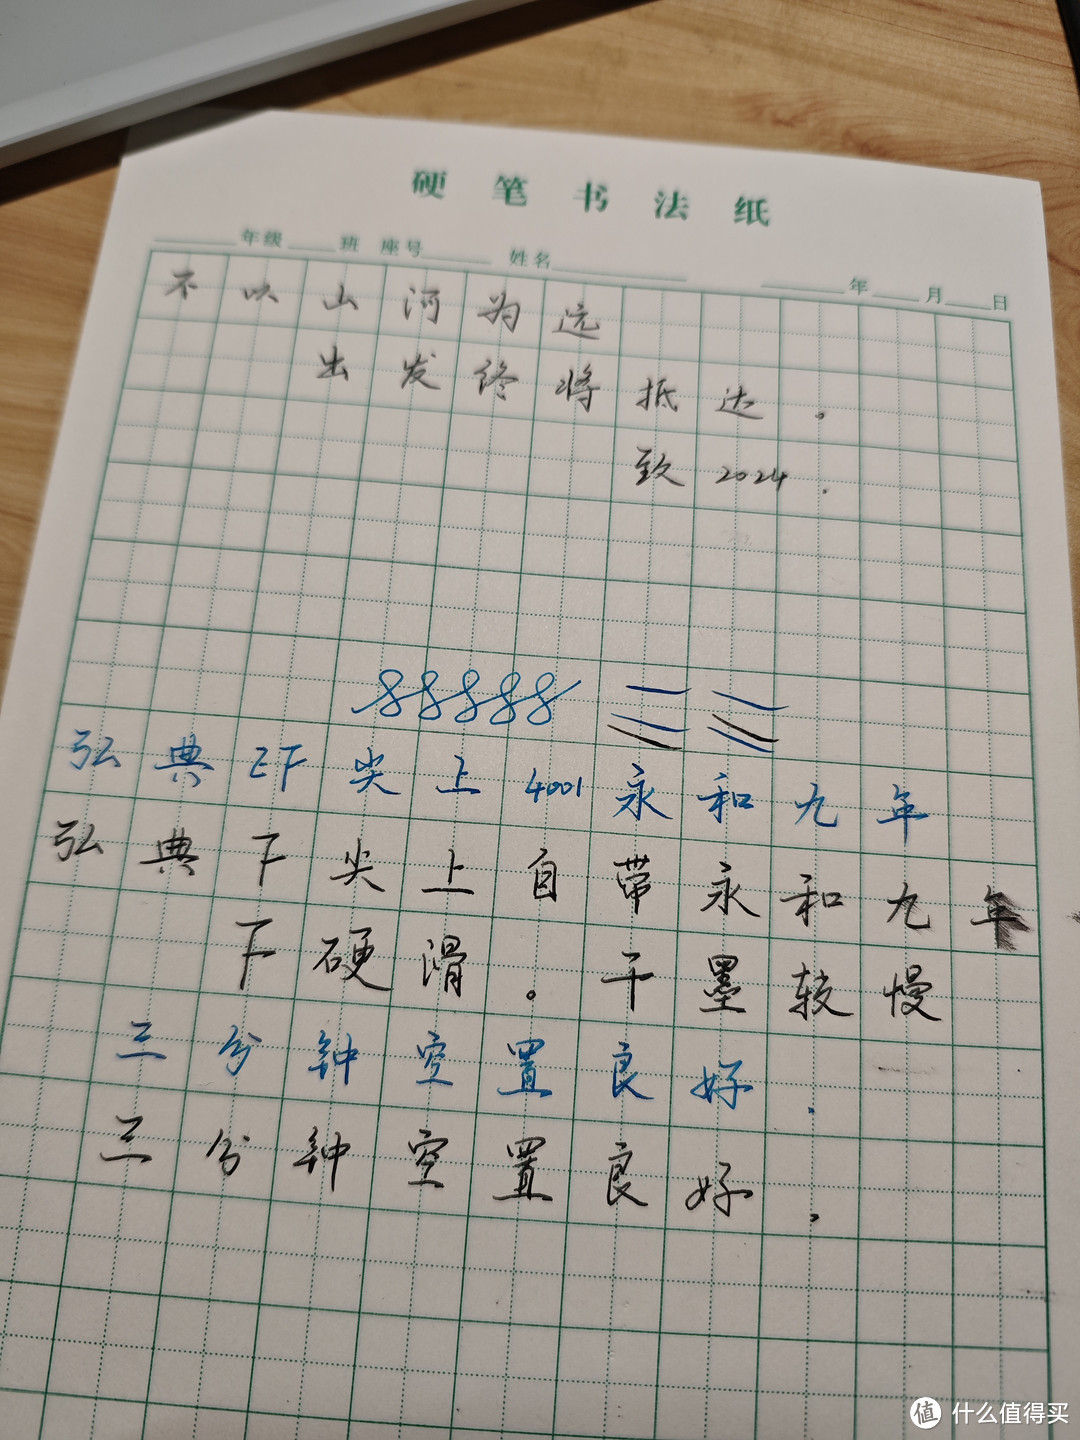 硬笔书法纸
年级 班 座号 姓名 年 月 日
不以山河为远
出发终将抵达。
致2024.
88888
弘典EF尖上4001永和九年
弘典F尖上自带永和九年
F硬滑。干墨较慢
三分钟空置良好.
三分钟空置良好.
值 什么值得买